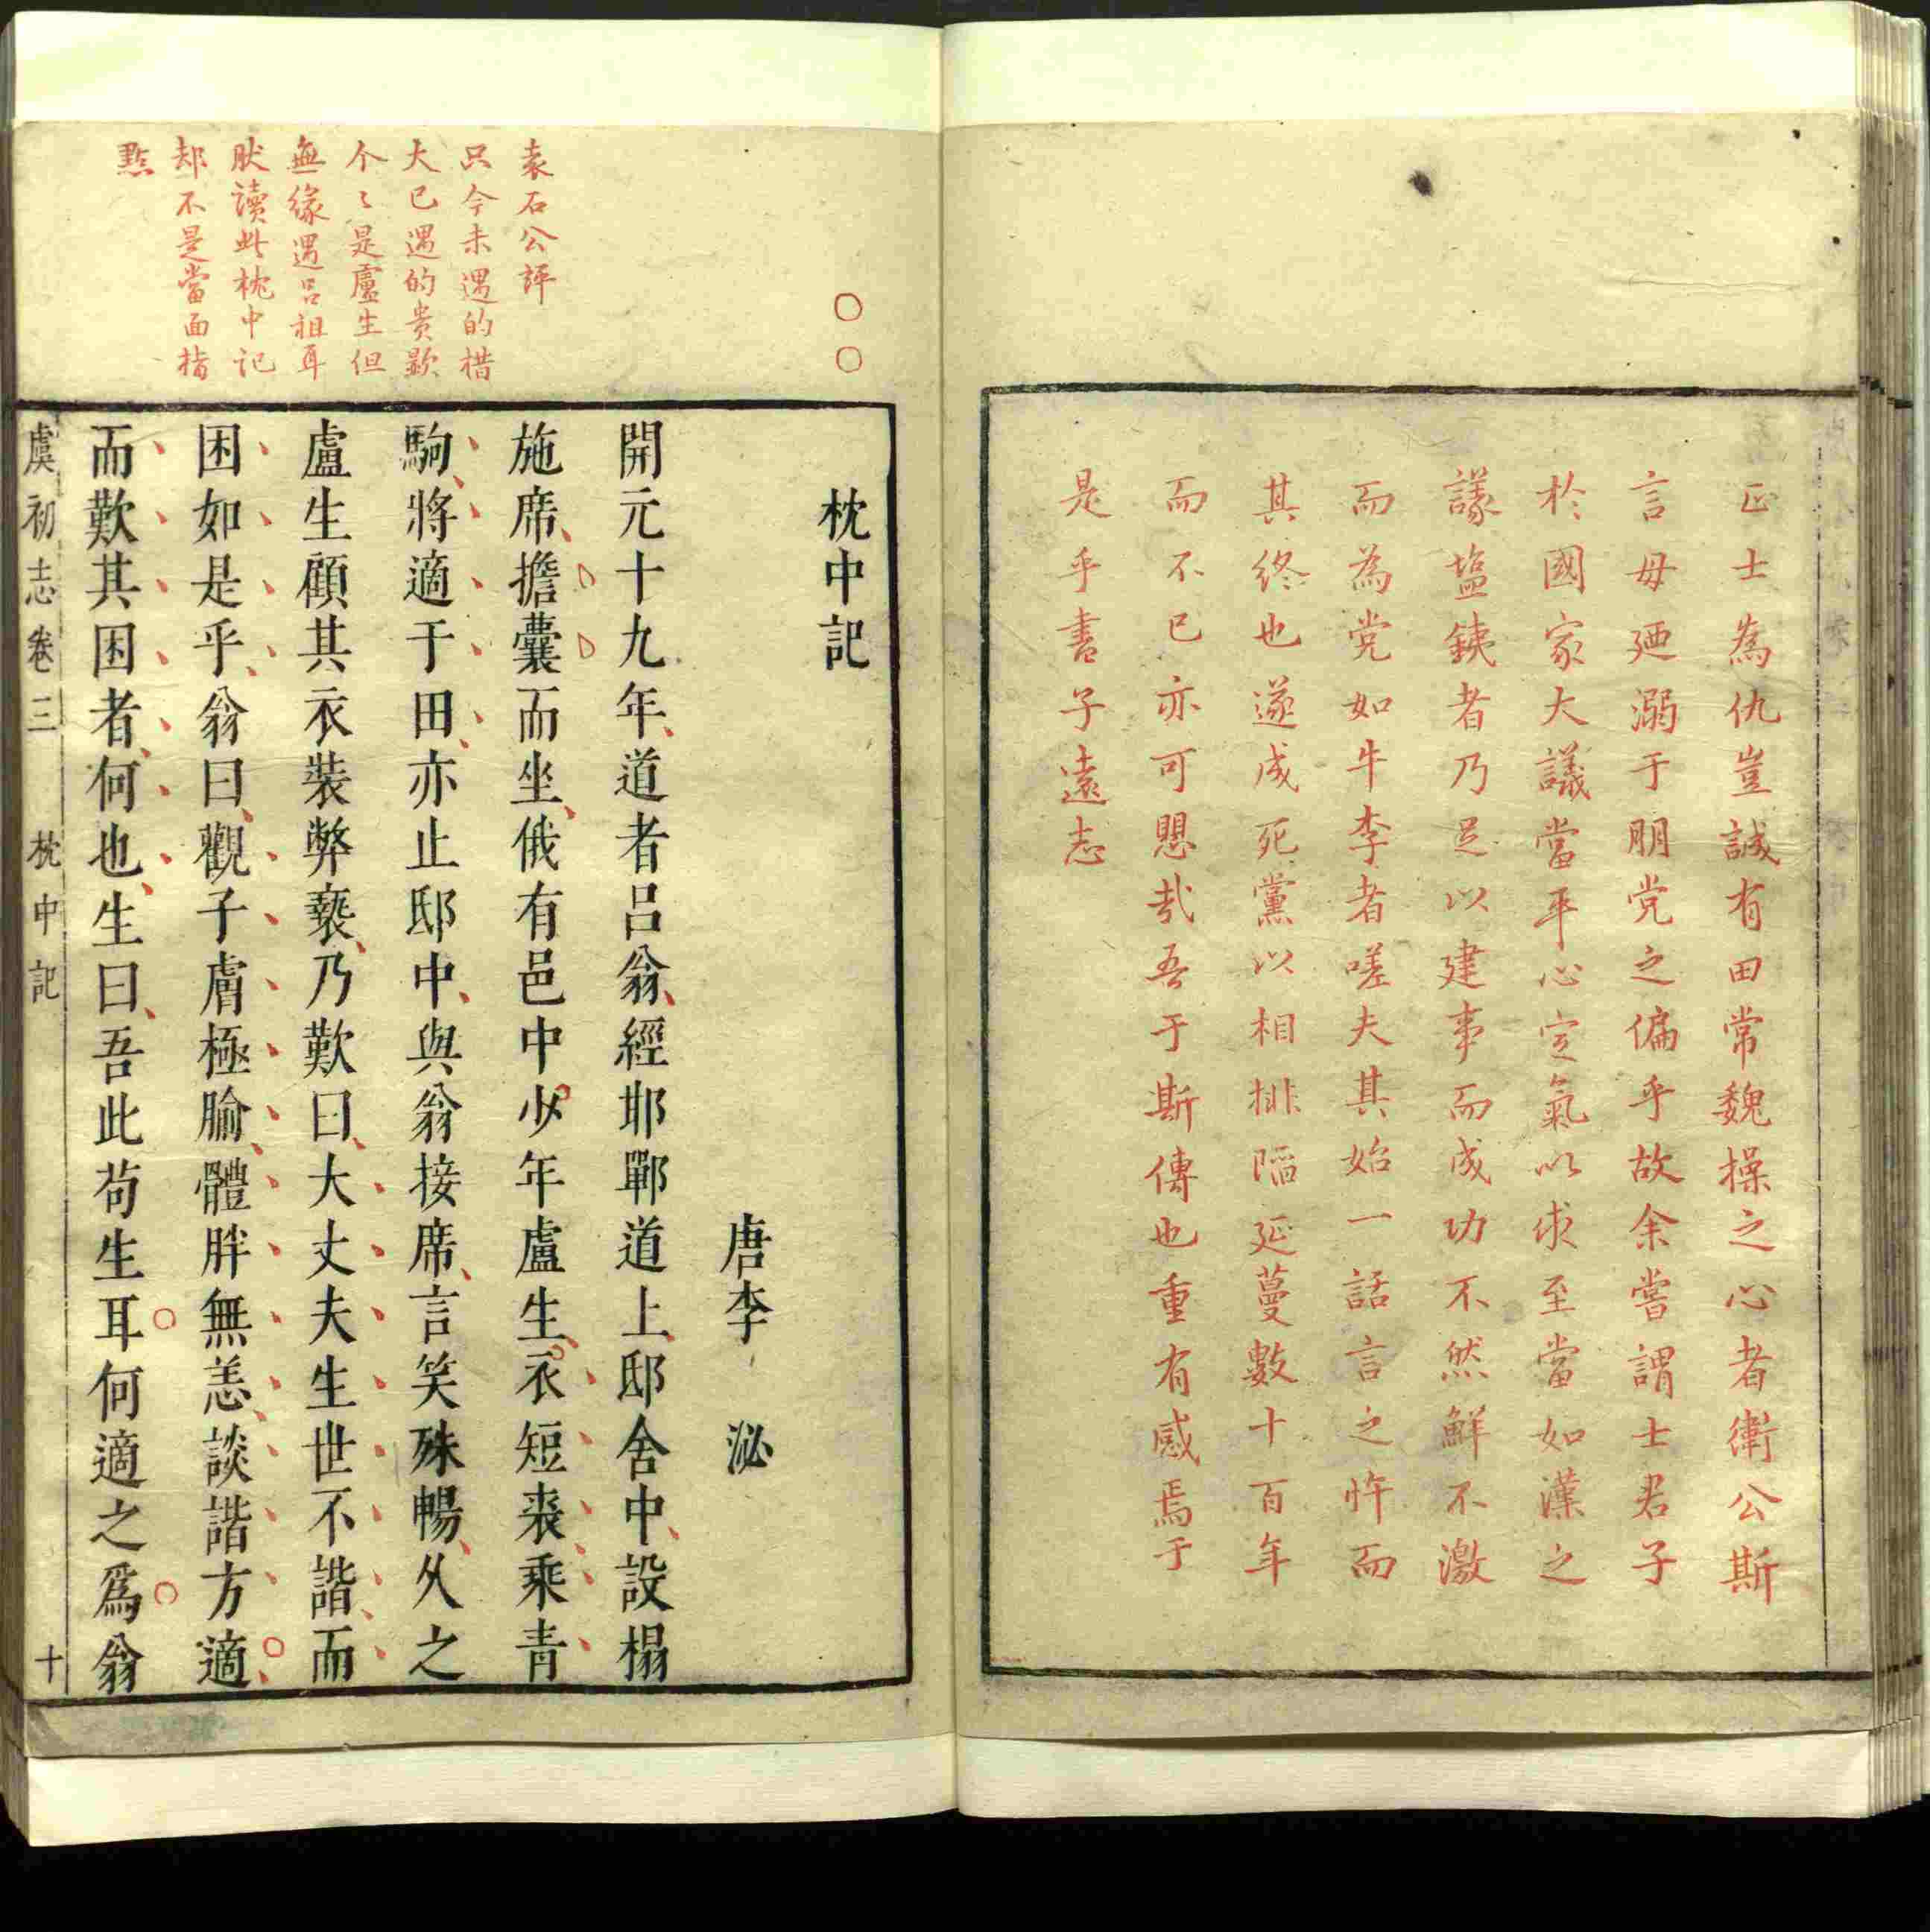 正士為仇豈誠有田常魏操之心者衛公斯
言毋廼溺于朋党之偏乎故余嘗謂士君子
於國家大議當平心定氣以求至當如漢之
議塩鉄者乃足以建事而成功不然鮮不激
而為党如牛李者嗟夫其始一話言之忤而
其終也遂成死黨以相排陷延蔓數十百年
而不已亦可愳哉吾于斯傳也重有感焉于
是乎書子遠志
袁石公評
只今未遇的措
大已遇的贵歘
个〻是盧生但
無緣遇呂祖耳
肰讀此枕中记
却不是當面指
點
枕中記
唐李泌
開元十九年道者呂翁經邯鄲道上邸舍中設榻
施席擔囊而坐俄有邑中少年盧生衣短裘乘青
駒將適于田亦止邸中與翁接席言笑殊暢久之
盧生顧其衣裝弊褻乃歎曰大丈夫生世不諧而
困如是乎翁曰觀子膚極腧體胖無恙談諧方適
而歎其困者何也生曰吾此苟生耳何適之爲翁
虞初志卷三 枕中記 十